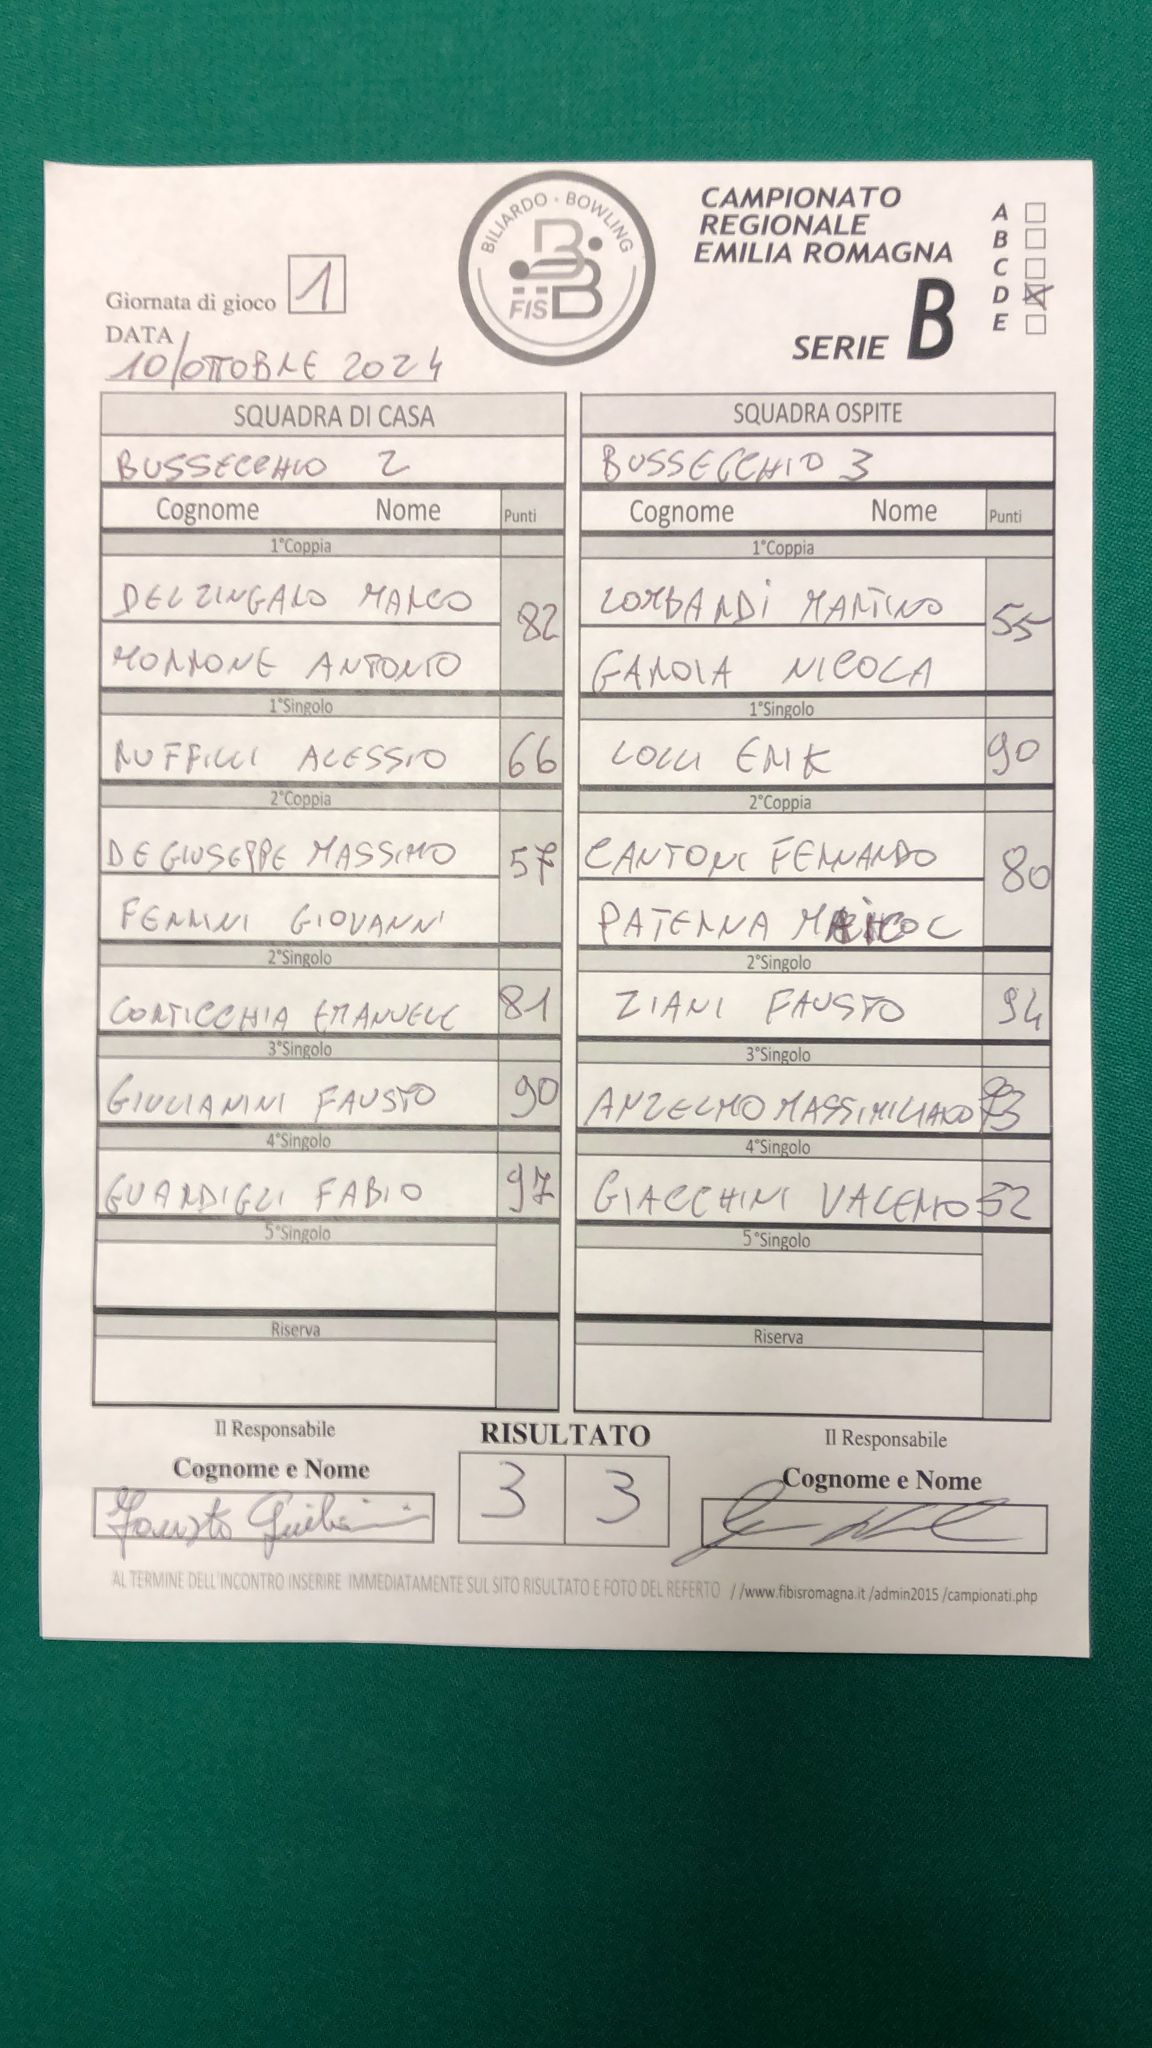 BILIARDO - BOWLING
FISBB
CAMPIONATO
REGIONALE
EMILIA ROMAGNA
SERIE B
A
B
C
D
E
Giornata di gioco 1
DATA
10/OTTOBRE 2024
SQUADRA DI CASA
BUSSECCHIO 2
Cognome Nome Punti
1°Coppia
DELZINGARO MARCO 82
MORRONE ANTONIO
1°Singolo
RUFFILLI ALESSIO 66
2°Coppia
DEGIUSEPPE MASSIMO 57
FERRINI GIOVANNI
2°Singolo
CORTICCHIA EMANUELE 81
3°Singolo
GIULIANINI FAUSTO 90
4°Singolo
GUARDIGLI FABIO 97
5°Singolo
Riserva
SQUADRA OSPITE
BUSSECCHIO 3
Cognome Nome Punti
1°Coppia
LOMBARDI MARTINO 55
GAROIA NICOLA
1°Singolo
LOLLI ERIK 90
2°Coppia
CANTONI FERNANDO 80
PATERNA
2°Singolo
ZIANI FAUSTO 94
3°Singolo
ANZELMO MASSIMILIANO
4°Singolo
GIACCHINI VALERIO 52
5°Singolo
Riserva
Il Responsabile
Cognome e Nome
Fausto Giulianini
RISULTATO
3 3
Il Responsabile
Cognome e Nome
AL TERMINE DELL'INCONTRO INSERIRE IMMEDIATAMENTE SUL SITO RISULTATO E FOTO DEL REFERTO //www.fibisromagna.it /admin2015 /campionati.php